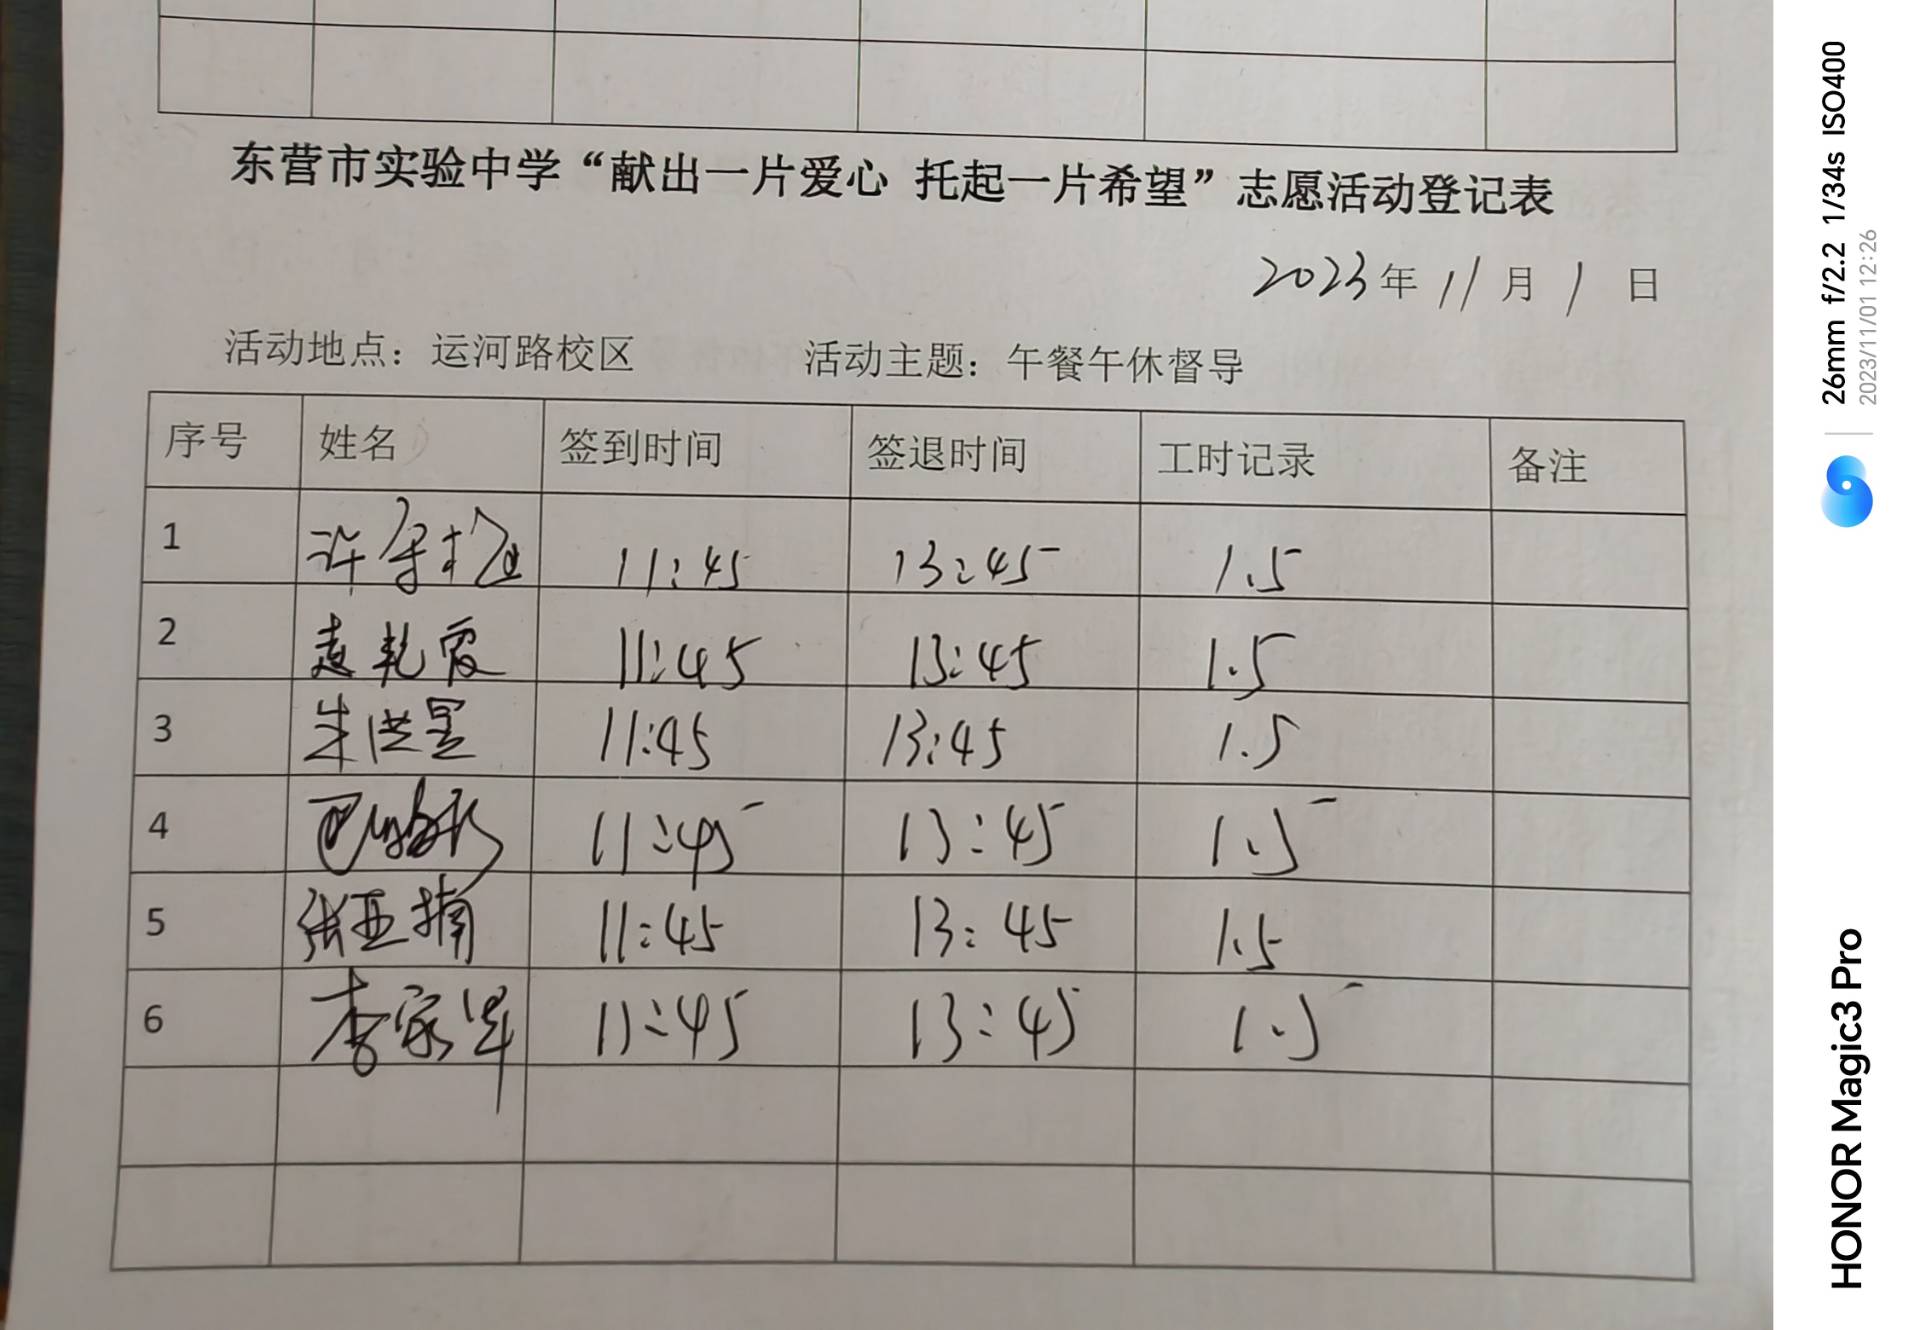 东营市实验中学“献出一片爱心 托起一片希望”志愿活动登记表
2023年 11月 1日
活动地点：运河路校区 活动主题：午餐午休督导
序号 姓名 签到时间 签退时间 工时记录 备注
1 许 11:45 13:45 1.5
2 赵乾霞 11:45 13:45 1.5
3 朱洪昱 11:45 13:45 1.5
4 巴 11:45 13:45 1.5
5 张亚楠 11:45 13:45 1.5
6 李家 11:45 13:45 1.5
26mm f/2.2 1/34s ISO400
2023/11/01 12:26
HONOR Magic3 Pro